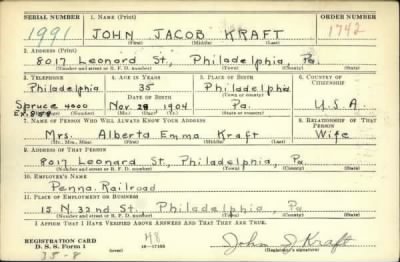 SERIAL NUMBER 1. NAME (Print) ORDER NUMBER
1991 JOHN JACOB KRAFT 1742
(First) (Middle) (Last)
2. ADDRESS (Print)
8017 Leonard St., Philadelphia, Pa.
(Number and street or R. F. D. number) (Town) (County) (State)
3. TELEPHONE 4. AGE IN YEARS 5. PLACE OF BIRTH 6. COUNTRY OF CITIZENSHIP
Philadelphia 35 Philadelphia
(Town or county)
DATE OF BIRTH
Spruce 4000 Nov. 28 1904 Pa. U.S.A.
(Mo.) (Day) (Yr.) (State or country)
7. NAME OF PERSON WHO WILL ALWAYS KNOW YOUR ADDRESS 8. RELATIONSHIP OF THAT PERSON
Mrs. Alberta Emma Kraft Wife
(Mr., Mrs., Miss) (First) (Middle) (Last)
9. ADDRESS OF THAT PERSON
8017 Leonard St., Philadelphia, Pa.
(Number and street or R. F. D. number) (Town) (County) (State)
10. EMPLOYER'S NAME
Penna. Railroad
11. PLACE OF EMPLOYMENT OR BUSINESS
15 N. 32nd St., Philadelphia, Pa
(Number and street or R. F. D. number) (Town) (County) (State)
I AFFIRM THAT I HAVE VERIFIED ABOVE ANSWERS AND THAT THEY ARE TRUE.
REGISTRATION CARD
D. S. S. Form 1
John J Kraft
35-8